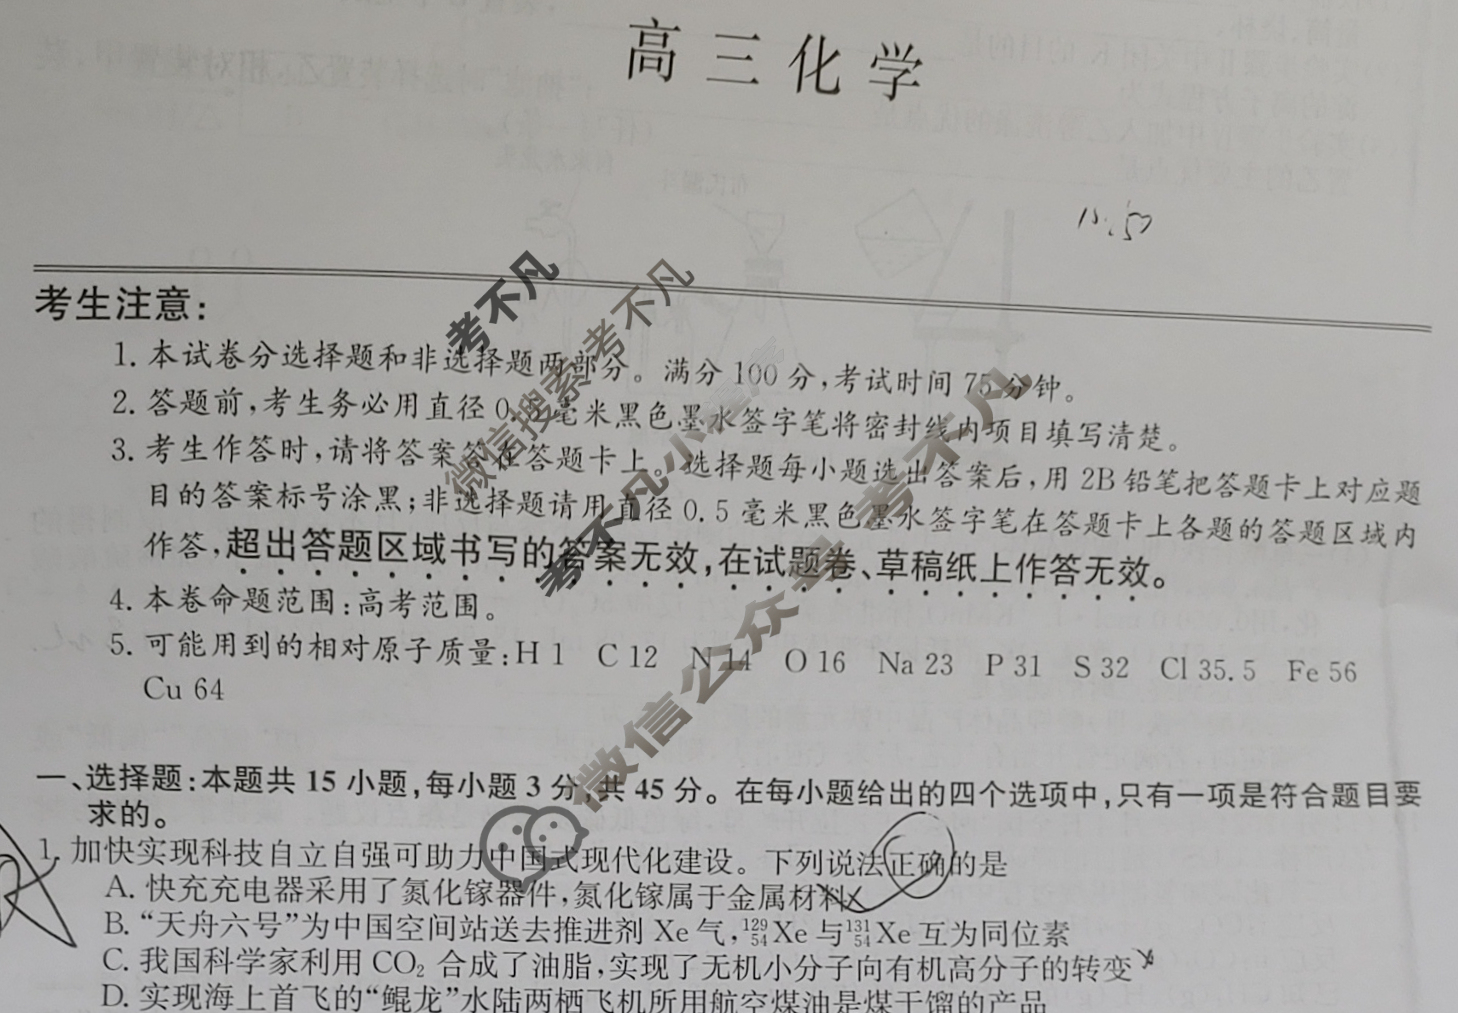 高三化学
考生注意:
1. 本试卷分选择题和非选择题两部分。满分 100 分,考试时间 75 分钟。
2. 答题前,考生务必用直径 0.5 毫米黑色墨水签字笔将密封线内项目填写清楚。
3. 考生作答时,请将答案答在答题卡上。选择题每小题选出答案后,用 2B 铅笔把答题卡上对应题
目的答案标号涂黑;非选择题请用直径 0.5 毫米黑色墨水签字笔在答题卡上各题的答题区域内
作答,超出答题区域书写的答案无效,在试题卷、草稿纸上作答无效。
4. 本卷命题范围:高考范围。
5. 可能用到的相对原子质量:H 1 C 12 N 14 O 16 Na 23 P 31 S 32 Cl 35.5 Fe 56
Cu 64
一、选择题:本题共 15 小题,每小题 3 分,共 45 分。在每小题给出的四个选项中,只有一项是符合题目要
求的。
1. 加快实现科技自立自强可助力中国式现代化建设。下列说法正确的是
A. 快充充电器采用了氮化镓器件,氮化镓属于金属材料
B. “天舟六号”为中国空间站送去推进剂 Xe 气,¹²⁹₅₄Xe 与¹³¹₅₄Xe 互为同位素
C. 我国科学家利用 CO₂ 合成了油脂,实现了无机小分子向有机高分子的转变
D. 实现海上首飞的“鲲龙”水陆两栖飞机所用航空煤油是煤干馏的产品
考不凡
微信搜索考不凡
考不凡小
微信公众号 考不凡